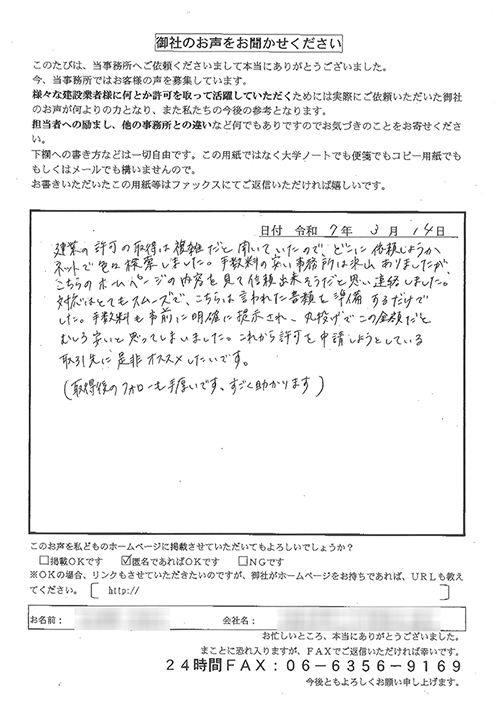 御社のお声をお聞かせください
このたびは、当事務所へご依頼くださいまして本当にありがとうございました。
今、当事務所ではお客様の声を募集しています。
様々な建設業者様に何とか許可を取って活躍していただくためには実際にご依頼いただいた御社
のお声が何よりの力となり、また私たちの今後の参考となります。
担当者への励まし、他の事務所との違いなど何でもありですのでお気づきのことをお寄せくださ
い。
下欄への書き方などは一切自由です。この用紙ではなく大学ノートでも便箋でもコピー用紙でも
もしくはメールでも構いませんので。
お書きいただいたこの用紙等はファックスにてご返信いただければ嬉しいです。
日付 令和 7年 3月 14日
建業の許可の取得は複雑だと聞いていたので、どこに依頼しようか
ネットで色々検索しました。手数料の安い事務所は沢山ありましたが、
こちらのホームページの内容を見て信頼出来そうだと思い連絡しました。
対応はとてもスムーズで、こちらは言われた書類を準備するだけで
した。手数料も事前に明確に提示され、丸投げでこの金額だと
むしろ安いと思ってしまいました。これから許可を申請しようとしている
取引先に是非オススメしたいです。
(取得後のフォローも手厚いです、すごく助かります)
このお声を私どものホームページに掲載させていただいてもよろしいでしょうか?
□掲載OKです ☑匿名であればOKです □NGです
※OKの場合、リンクもさせていただきたいのですが、御社がホームページをお持ちであれば、URLも教え
てください。[ http:// ]
お名前: 会社名:
お忙しいところ、本当にありがとうございました。
まことに恐れ入りますが、FAXでご返信いただければ幸いです。
24時間FAX:06-6356-9169
今後ともよろしくお願い申し上げます。